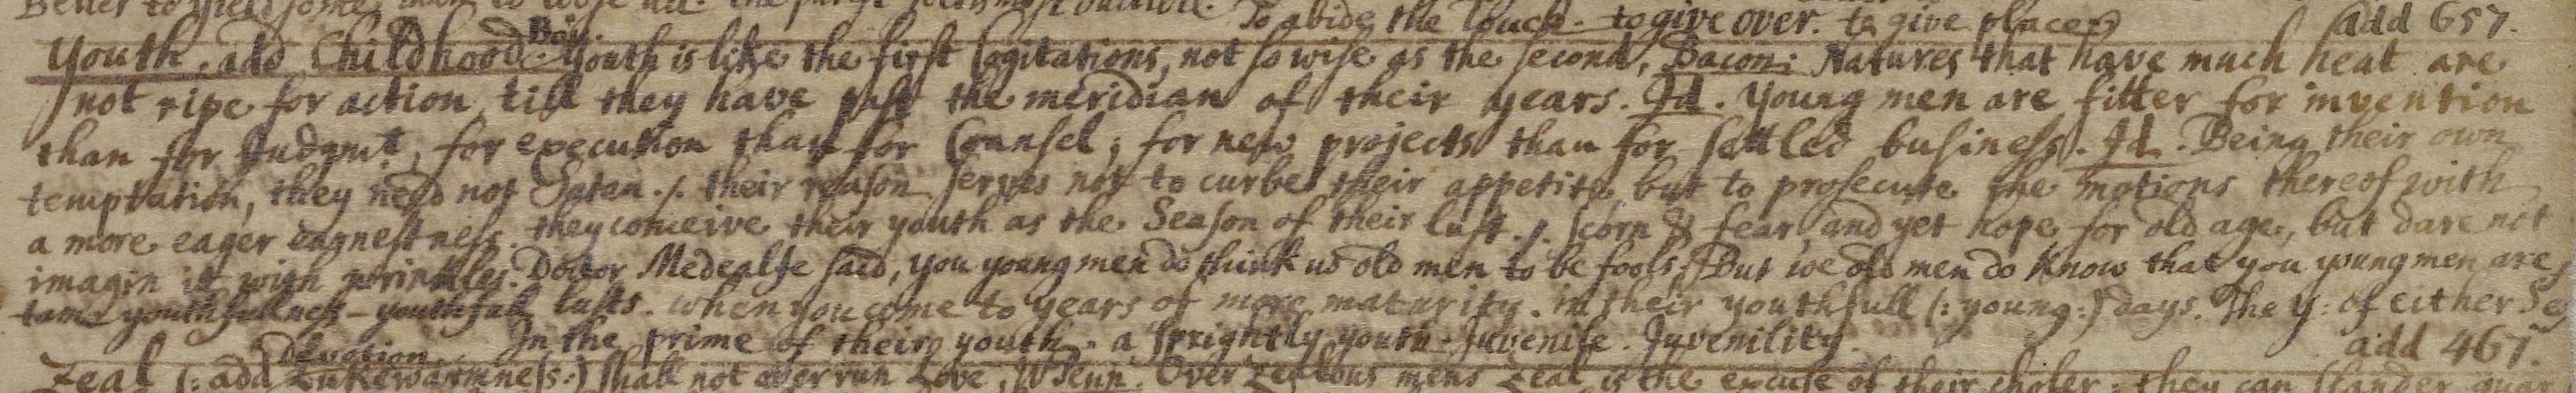 Better to yield some, than to loose all. the
To abide the Touch. to give over. to give place
add 657.
Youth. add Childhood. Boy. Youth is like the first Cogitations, not so wise as the second, Bacon: Natures that have much heat are
not ripe for action till they have past the meridian of their years. Id. young men are fitter for invention
than for Judgmt, for execution than for Counsel; for new projects than for settled business. Id. Being their own
temptation, they need not Satan. /. their reason serves not to curbe their appetite but to prosecute the motions thereof with
a more eager earnestness. they conceive their youth as the Season of their lust. /. scorn & fear, and yet hope for old age, but dare not
imagin it with wrinkles. Doctor Medcalfe said, you young men do think us old men to be fools, But we old men do know that you young men are
youthfullness - youthfull lusts. when you come to years of more maturity. in their youthfull (: young :) days. The y: of either Sex
In the prime of their youth. a sprightly youth. Juvenile. Juvenility.
add 467.
Zeal (: add devotion Lukewarmness :) shall not over run Love, W Penn. Over zealous mens zeal is the excuse of their choler: they can slander